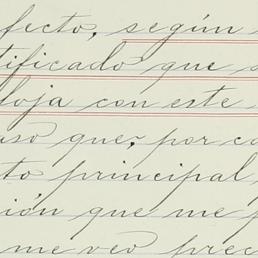 fecto, según
tificado que s
loja con este
aso que, por ca
to principal
ión que me p
me veo prec